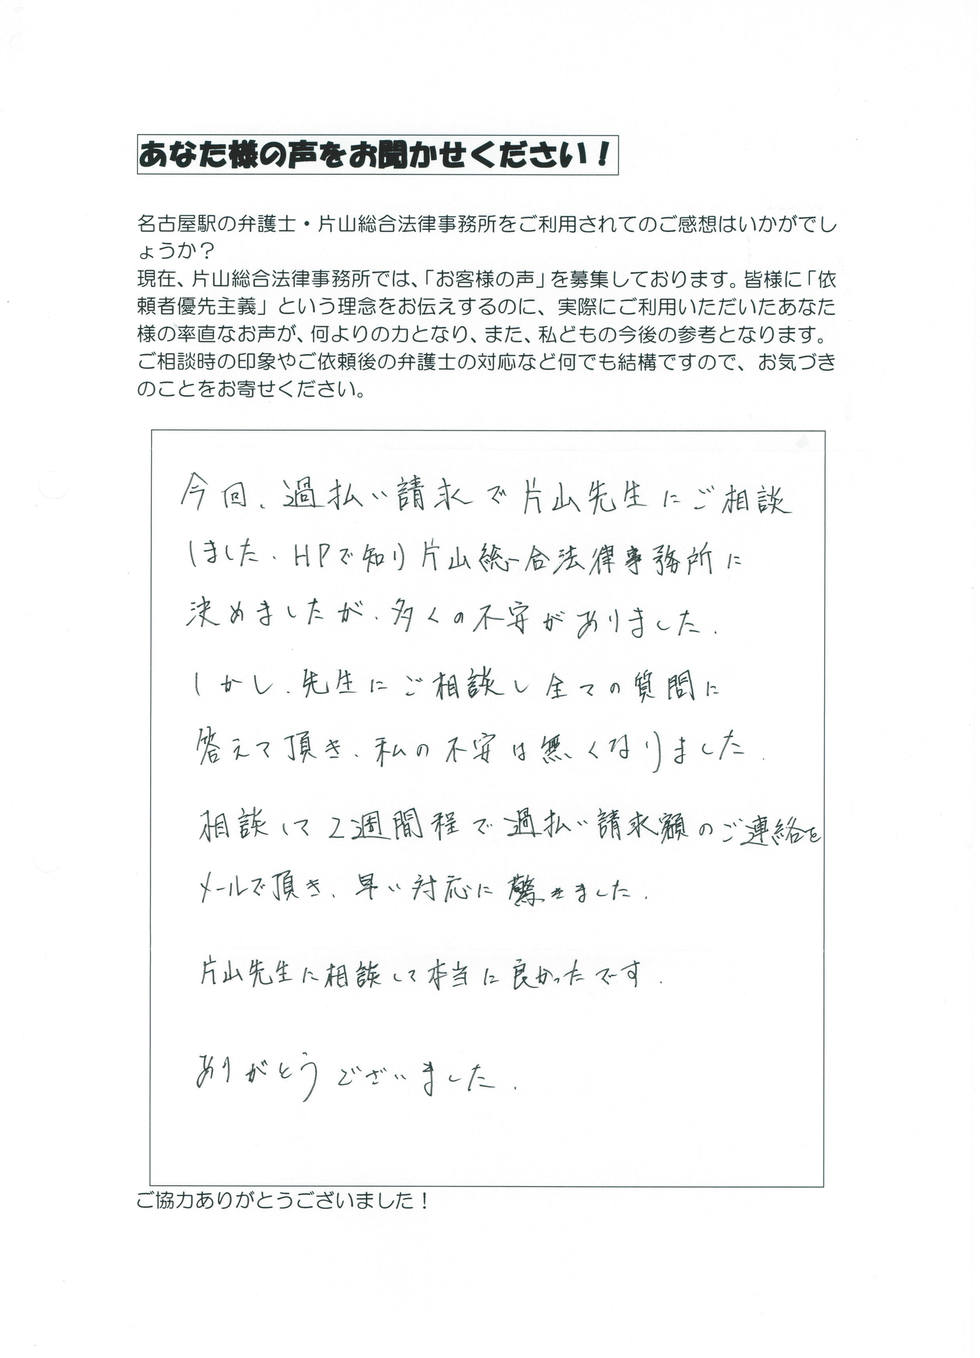 あなた様の声をお聞かせください！
名古屋駅の弁護士・片山総合法律事務所をご利用されてのご感想はいかがでし
ょうか？
現在、片山総合法律事務所では、「お客様の声」を募集しております。皆様に「依
頼者優先主義」という理念をお伝えするのに、実際にご利用いただいたあなた
様の率直なお声が、何よりの力となり、また、私どもの今後の参考となります。
ご相談時の印象やご依頼後の弁護士の対応など何でも結構ですので、お気づき
のことをお寄せください。
今回、過払い請求で片山先生にご相談
しました。HPで知り片山総合法律事務所に
決めましたが、多くの不安がありました。
しかし、先生にご相談し全ての質問に
答えて頂き、私の不安は無くなりました。
相談して2週間程で過払い請求額のご連絡を
メールで頂き、早い対応に驚きました。
片山先生に相談して本当に良かったです。
ありがとうございました。
ご協力ありがとうございました！